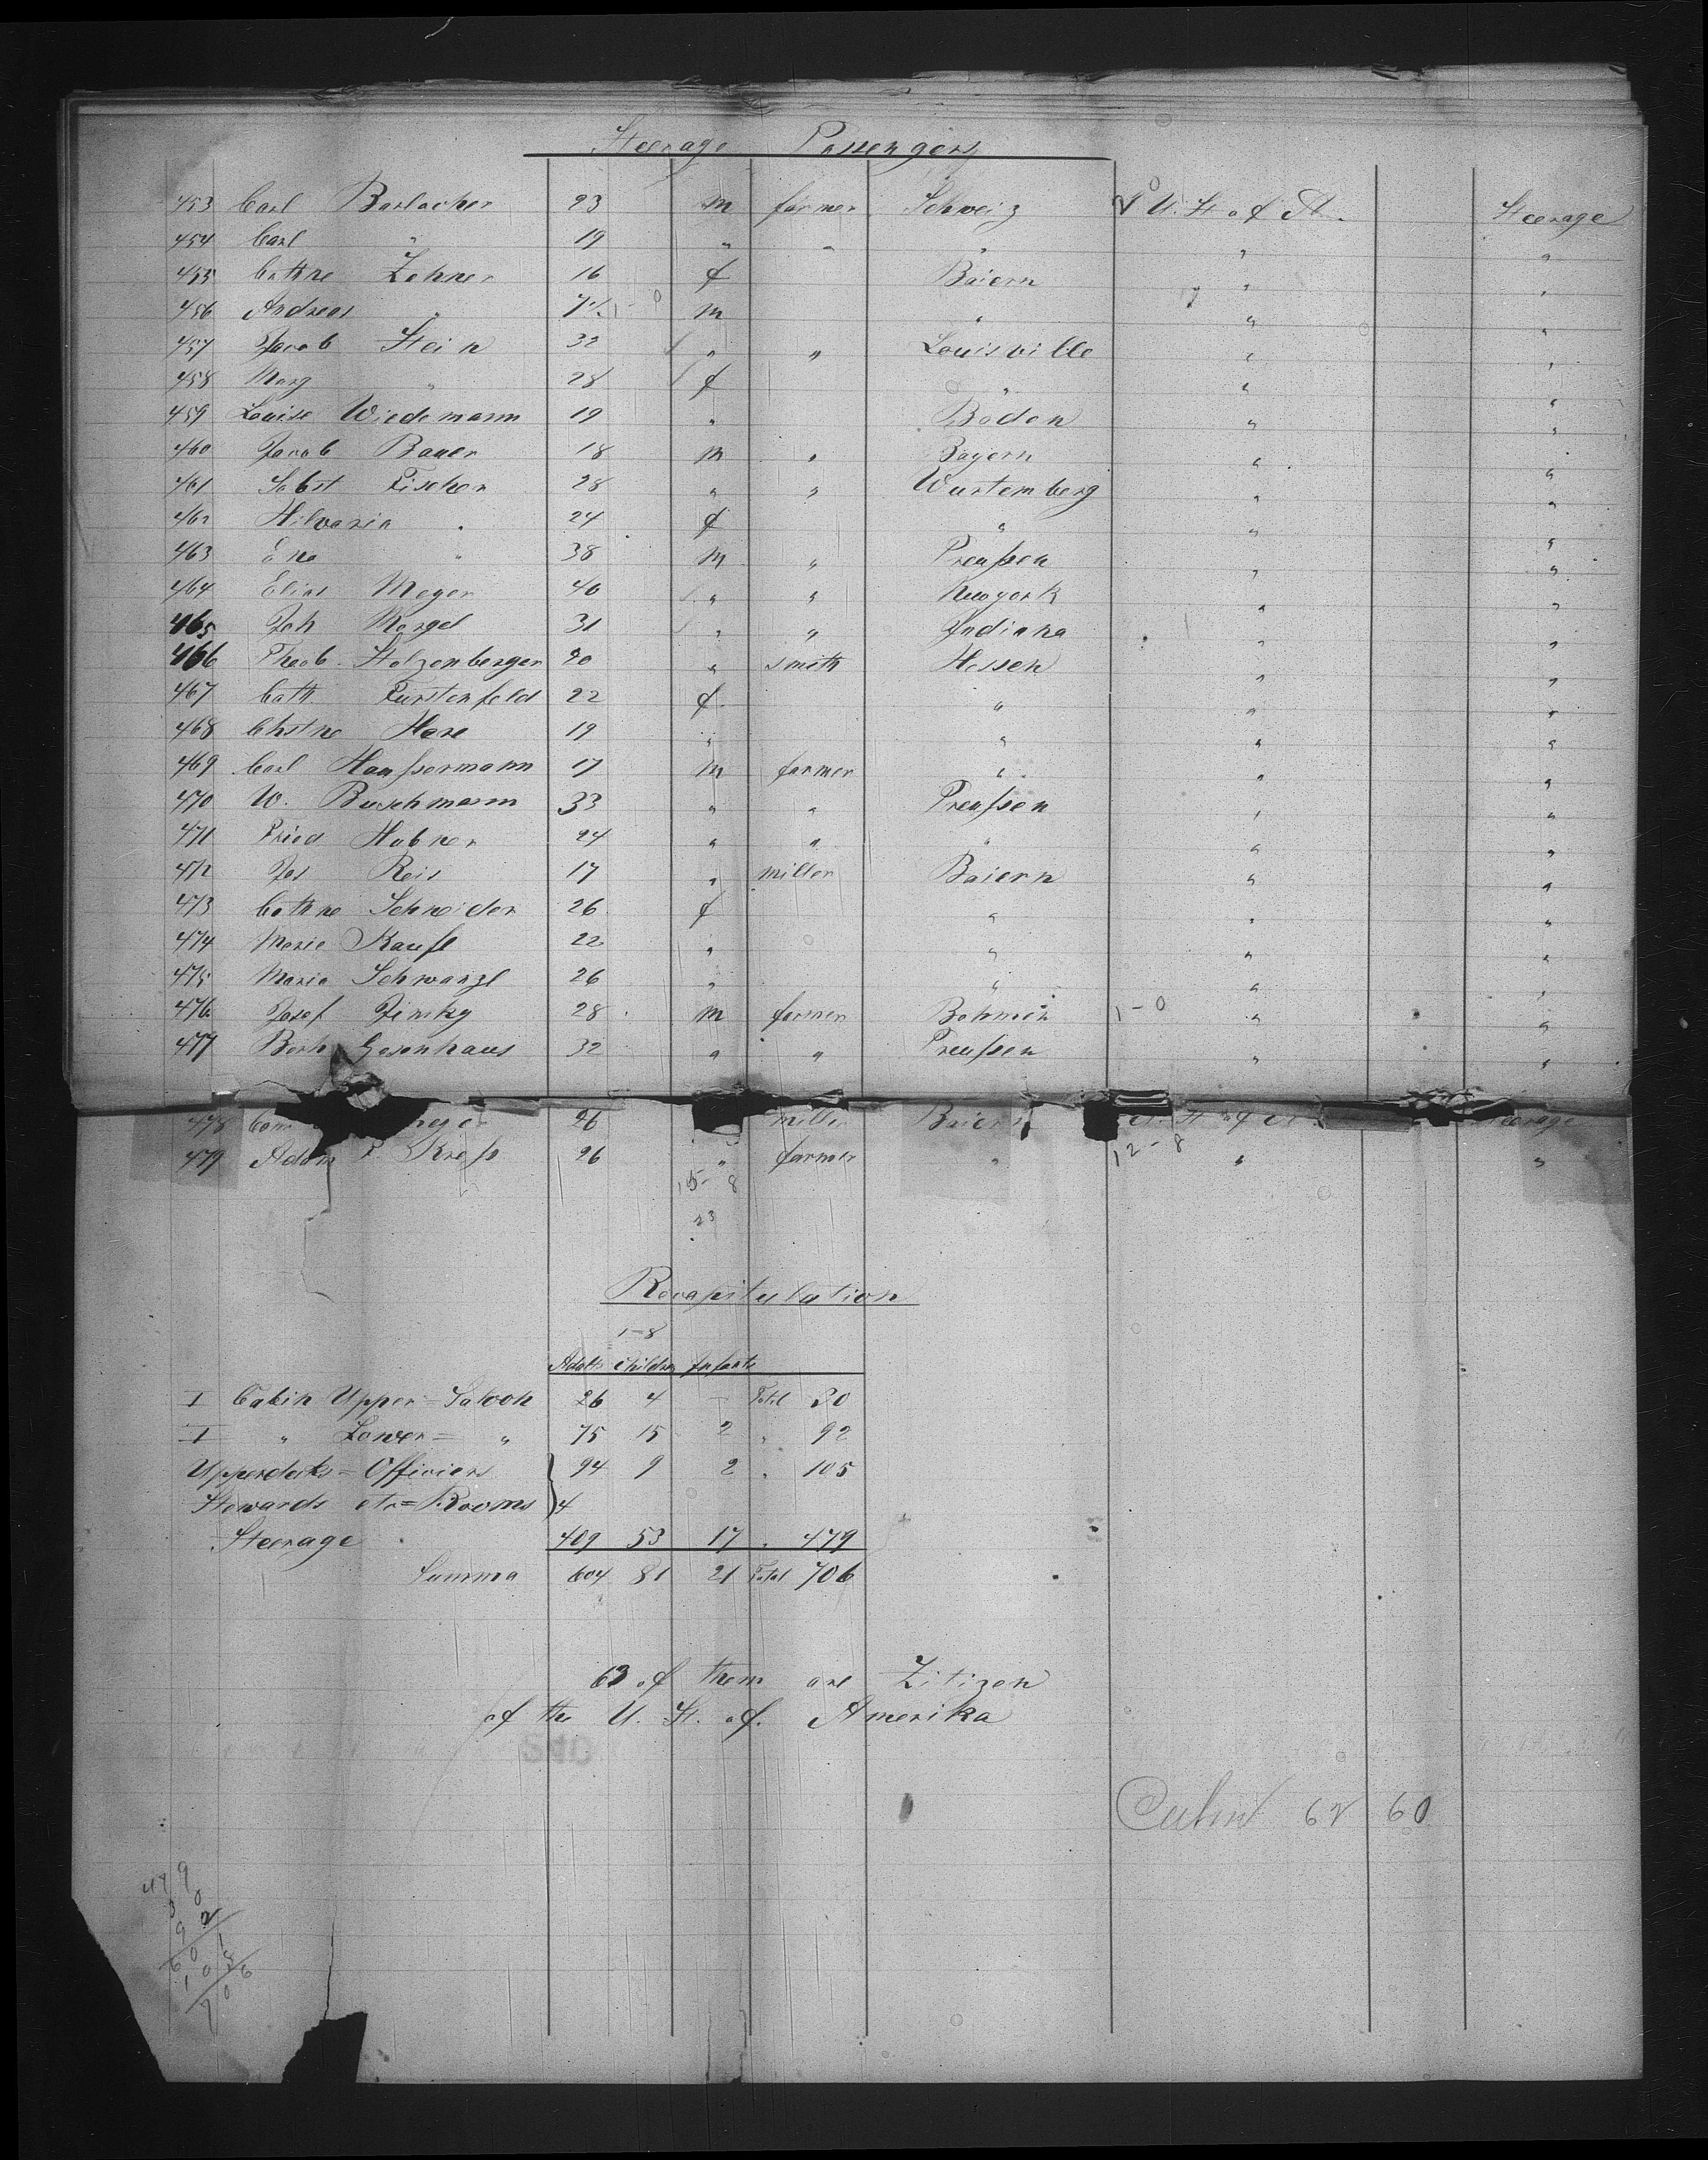 Steerage Passengers
453 Carl Barlocher 23 m farmer Schweiz U. St. of A. Steerage
454 Carl " 19 " " " " "
455 Cathne Zehner 16 f Baiern " "
456 Andreas " 7 m " " "
457 Jacob Stein 32 " " Louisville " "
458 Marg " 28 f " " "
459 Louise Wiedemann 19 " Baden " "
460 Jacob Bauer 18 m " Bayern " "
461 Sebst Fischer 28 " " Wurtemberg " "
462 Hilvaria " 24 f " " "
463 Eno " 38 m " Preußen " "
464 Elias Meyer 40 " " Newyork " "
465 Joh Margel 31 " " Indiana " "
466 Theob. Stolzenberger 20 " smith Hessen " "
467 Cath. Furstenfeld 22 f. " " "
468 Chstne Hase 19 " " " "
469 Carl Haußermann 17 m farmer " " "
470 W. Buschmann 33 " " Preußen " "
471 Fried Hubner 24 " " " " "
472 Jos Reis 17 " miller Baiern " "
473 Cathne Schneider 26 f " " "
474 Marie Kaufl 22 " " " "
475 Maria Schwarzl 26 " " " "
476 Josef Zimky 28 m farmer Bohmen 1-0 " "
477 Berh Gosenhaus 32 " " Preußen " "
478 26 mille Baiern U. St of A. Steerage
479 Adam Kreß 26 " farmer " 12-8 " "
15-8
23
Recapitulation
1-8
Adults Children Infants
I Cabin Upper=Saloon 26 4 — Total 30
I " Lower= " 75 15 2 " 92
Upperdeks=Officiers 94 9 2 " 105
Stewards etc=Rooms 4
Steerage 409 53 17 " 479
Summa 604 81 21 Total 706
63 of them are Zitizen
of the U. St. of. Amerika
62 60
479
30
92
601
105
706